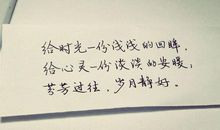 给时光一份浅浅的回眸，
给心灵一份淡淡的安暖，
芬芳过往，岁月静好。